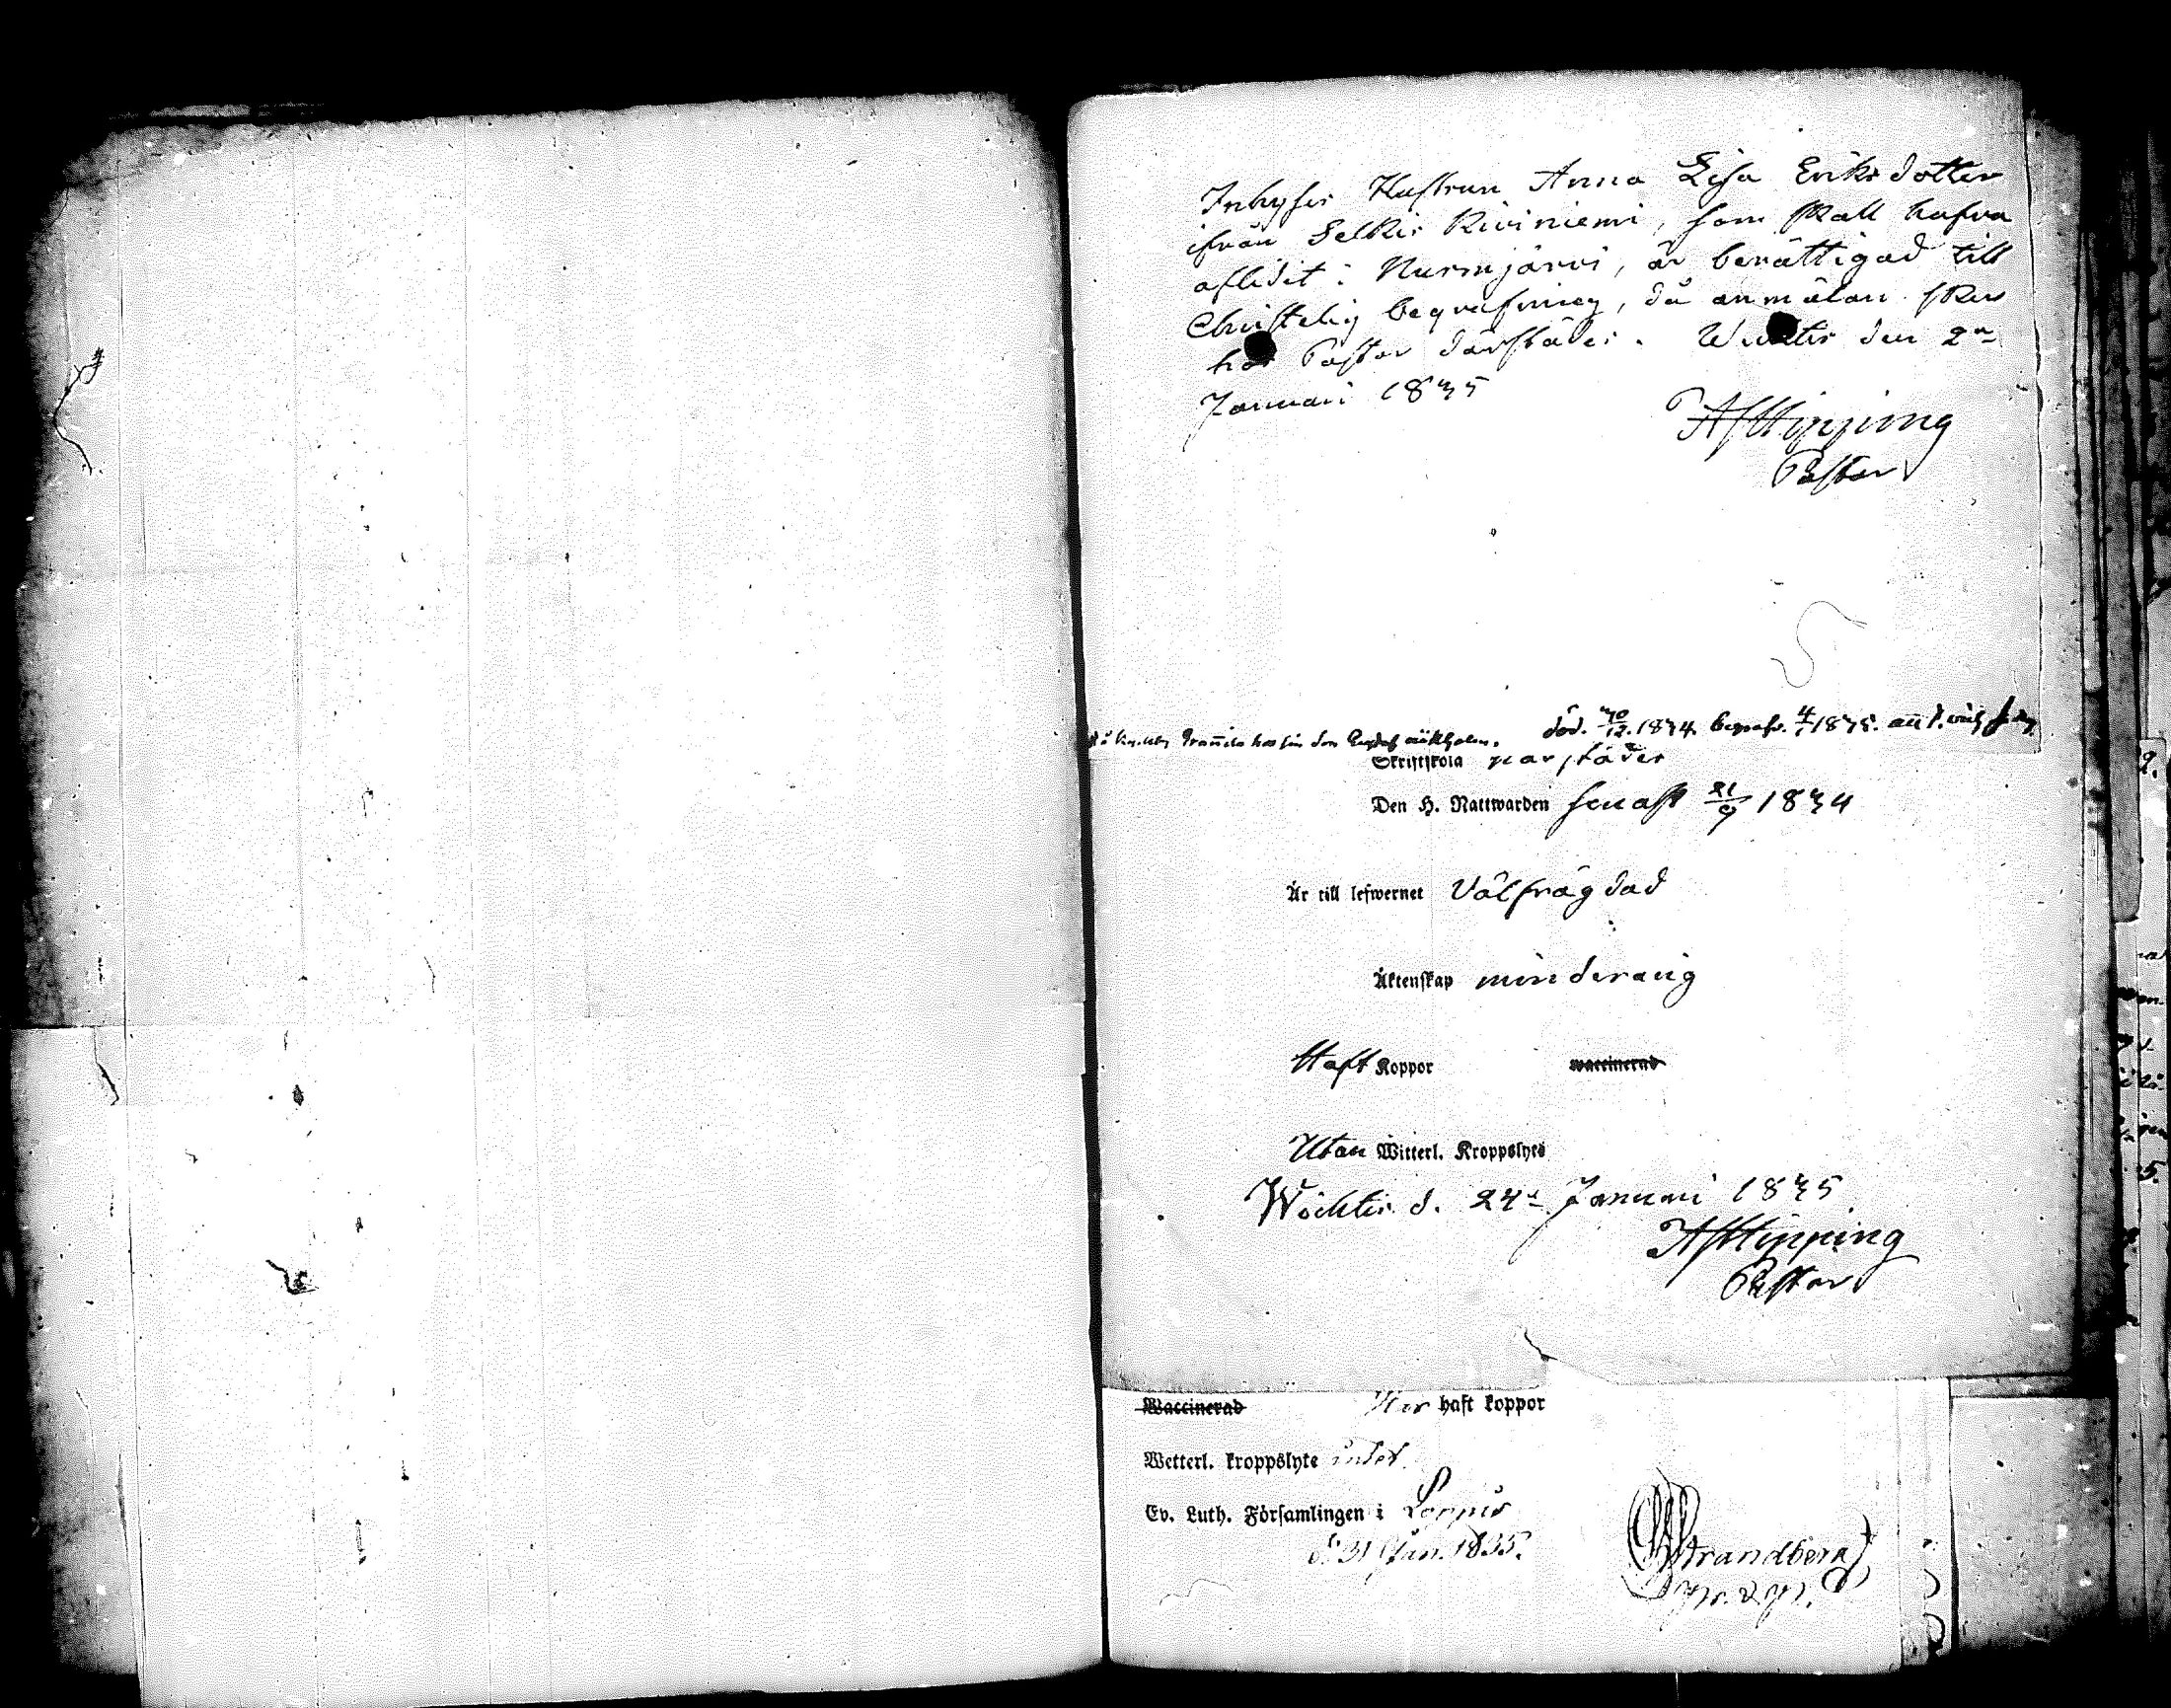 Inhyses Hustrun Anna Lisa Eriksdotter
ifrån Selkis Kiviniemi, som skall hafva
aflidit i Nurmjärvi, är berättigad till
Christelig begrafning, då anmälan sker
hos Pastor därstädes. Wichtis den 2a
Januari 1835
Hipping
Pastor
död. 30/12. 1834. begrafv. 4/1 1835.
hos sin son Gustaf
Skriftskola härstädes
Den H. Nattwarden senast 21/9 1834
Är till lefwernet Välfrägdad
Äktenskap minderårig
Haft Koppor waccinerad
Utan Witterl. Kroppslyte
Wichtis d. 24a Januari 1835
Hipping
Pastor
Waccinerad Har haft koppor
Wetterl. kroppslyte intet.
Ev. Luth. Församlingen i Loppis
d. 31 Jan. 1835.
Strandberg